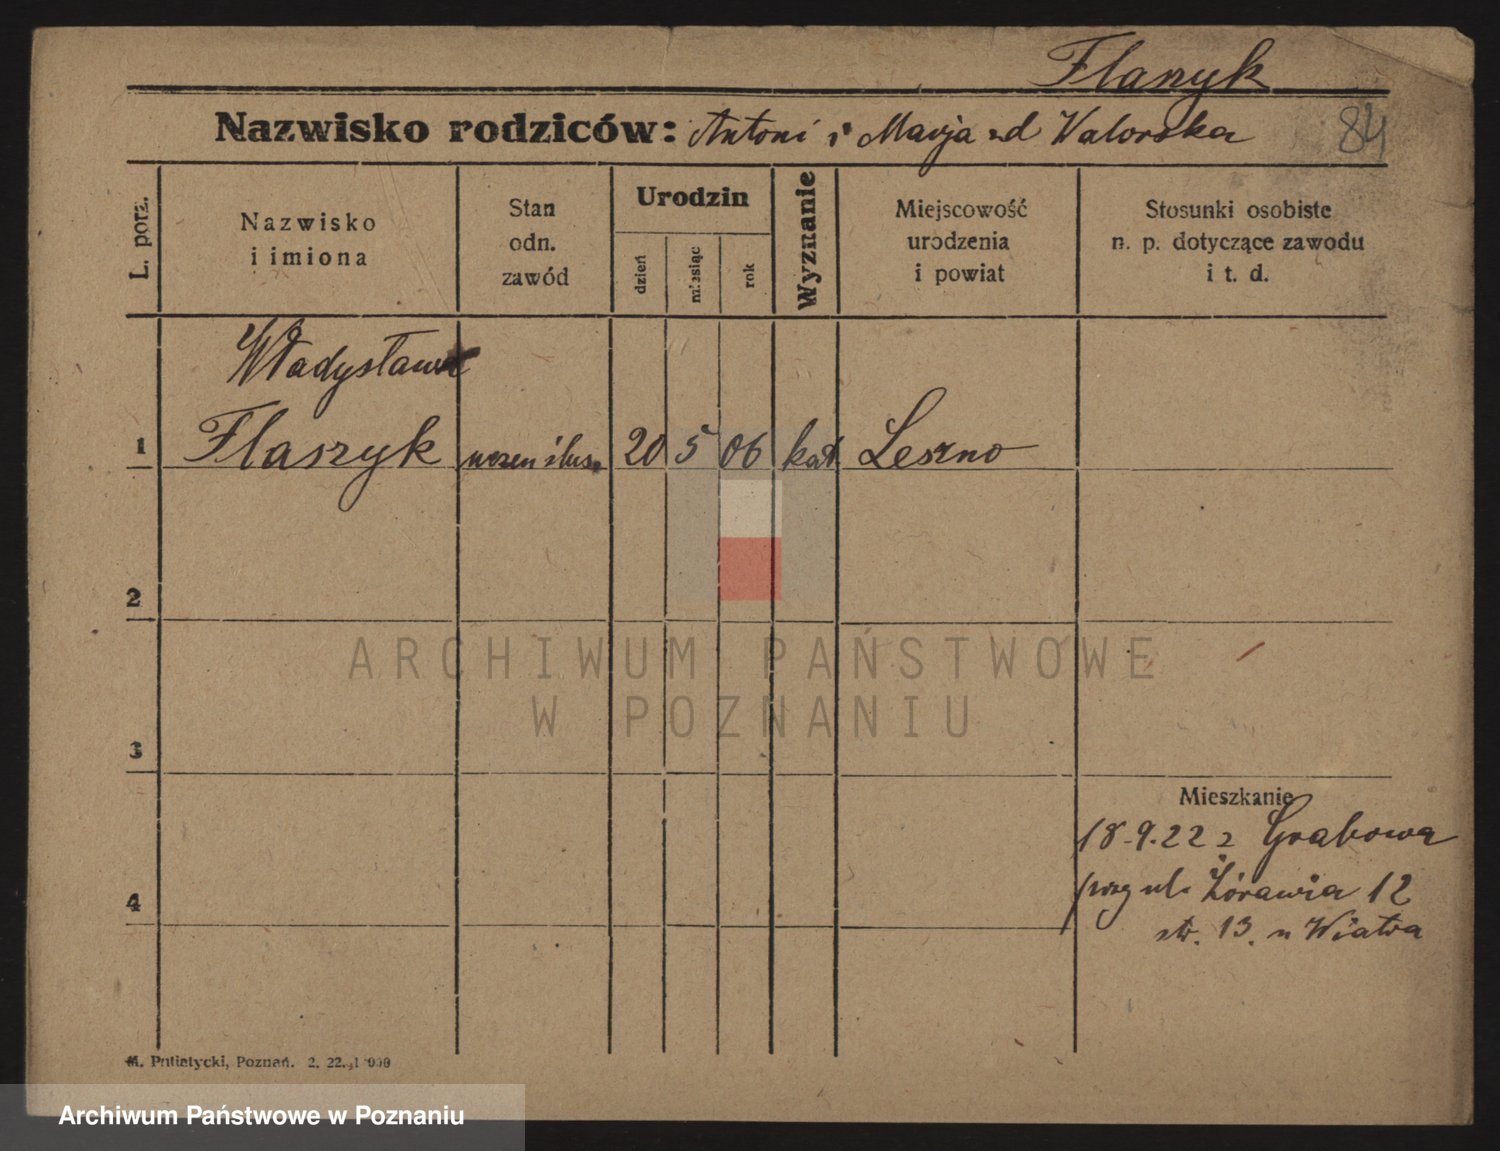 Flaszyk
Nazwisko rodziców: Antoni i Marja zd Walorska
84
L. porz.
Nazwisko
i imiona
Stan
odn.
zawód
Urodzin
dzień
miesiąc
rok
Wyznanie
Miejscowość
urodzenia
i powiat
Stosunki osobiste
n. p. dotyczące zawodu
i t. d.
Władysław
1 Flaszyk uczeń ślus. 20 5 06 kat Leszno
2
ARCHIWUM PAŃSTWOWE
W POZNANIU
3
Mieszkanie
18-9.22 z Grabowa
przy ul. Żórawia 12
4
str. 13. u Wiatra
M. Putiatycki, Poznań. 2. 22.
Archiwum Państwowe w Poznaniu